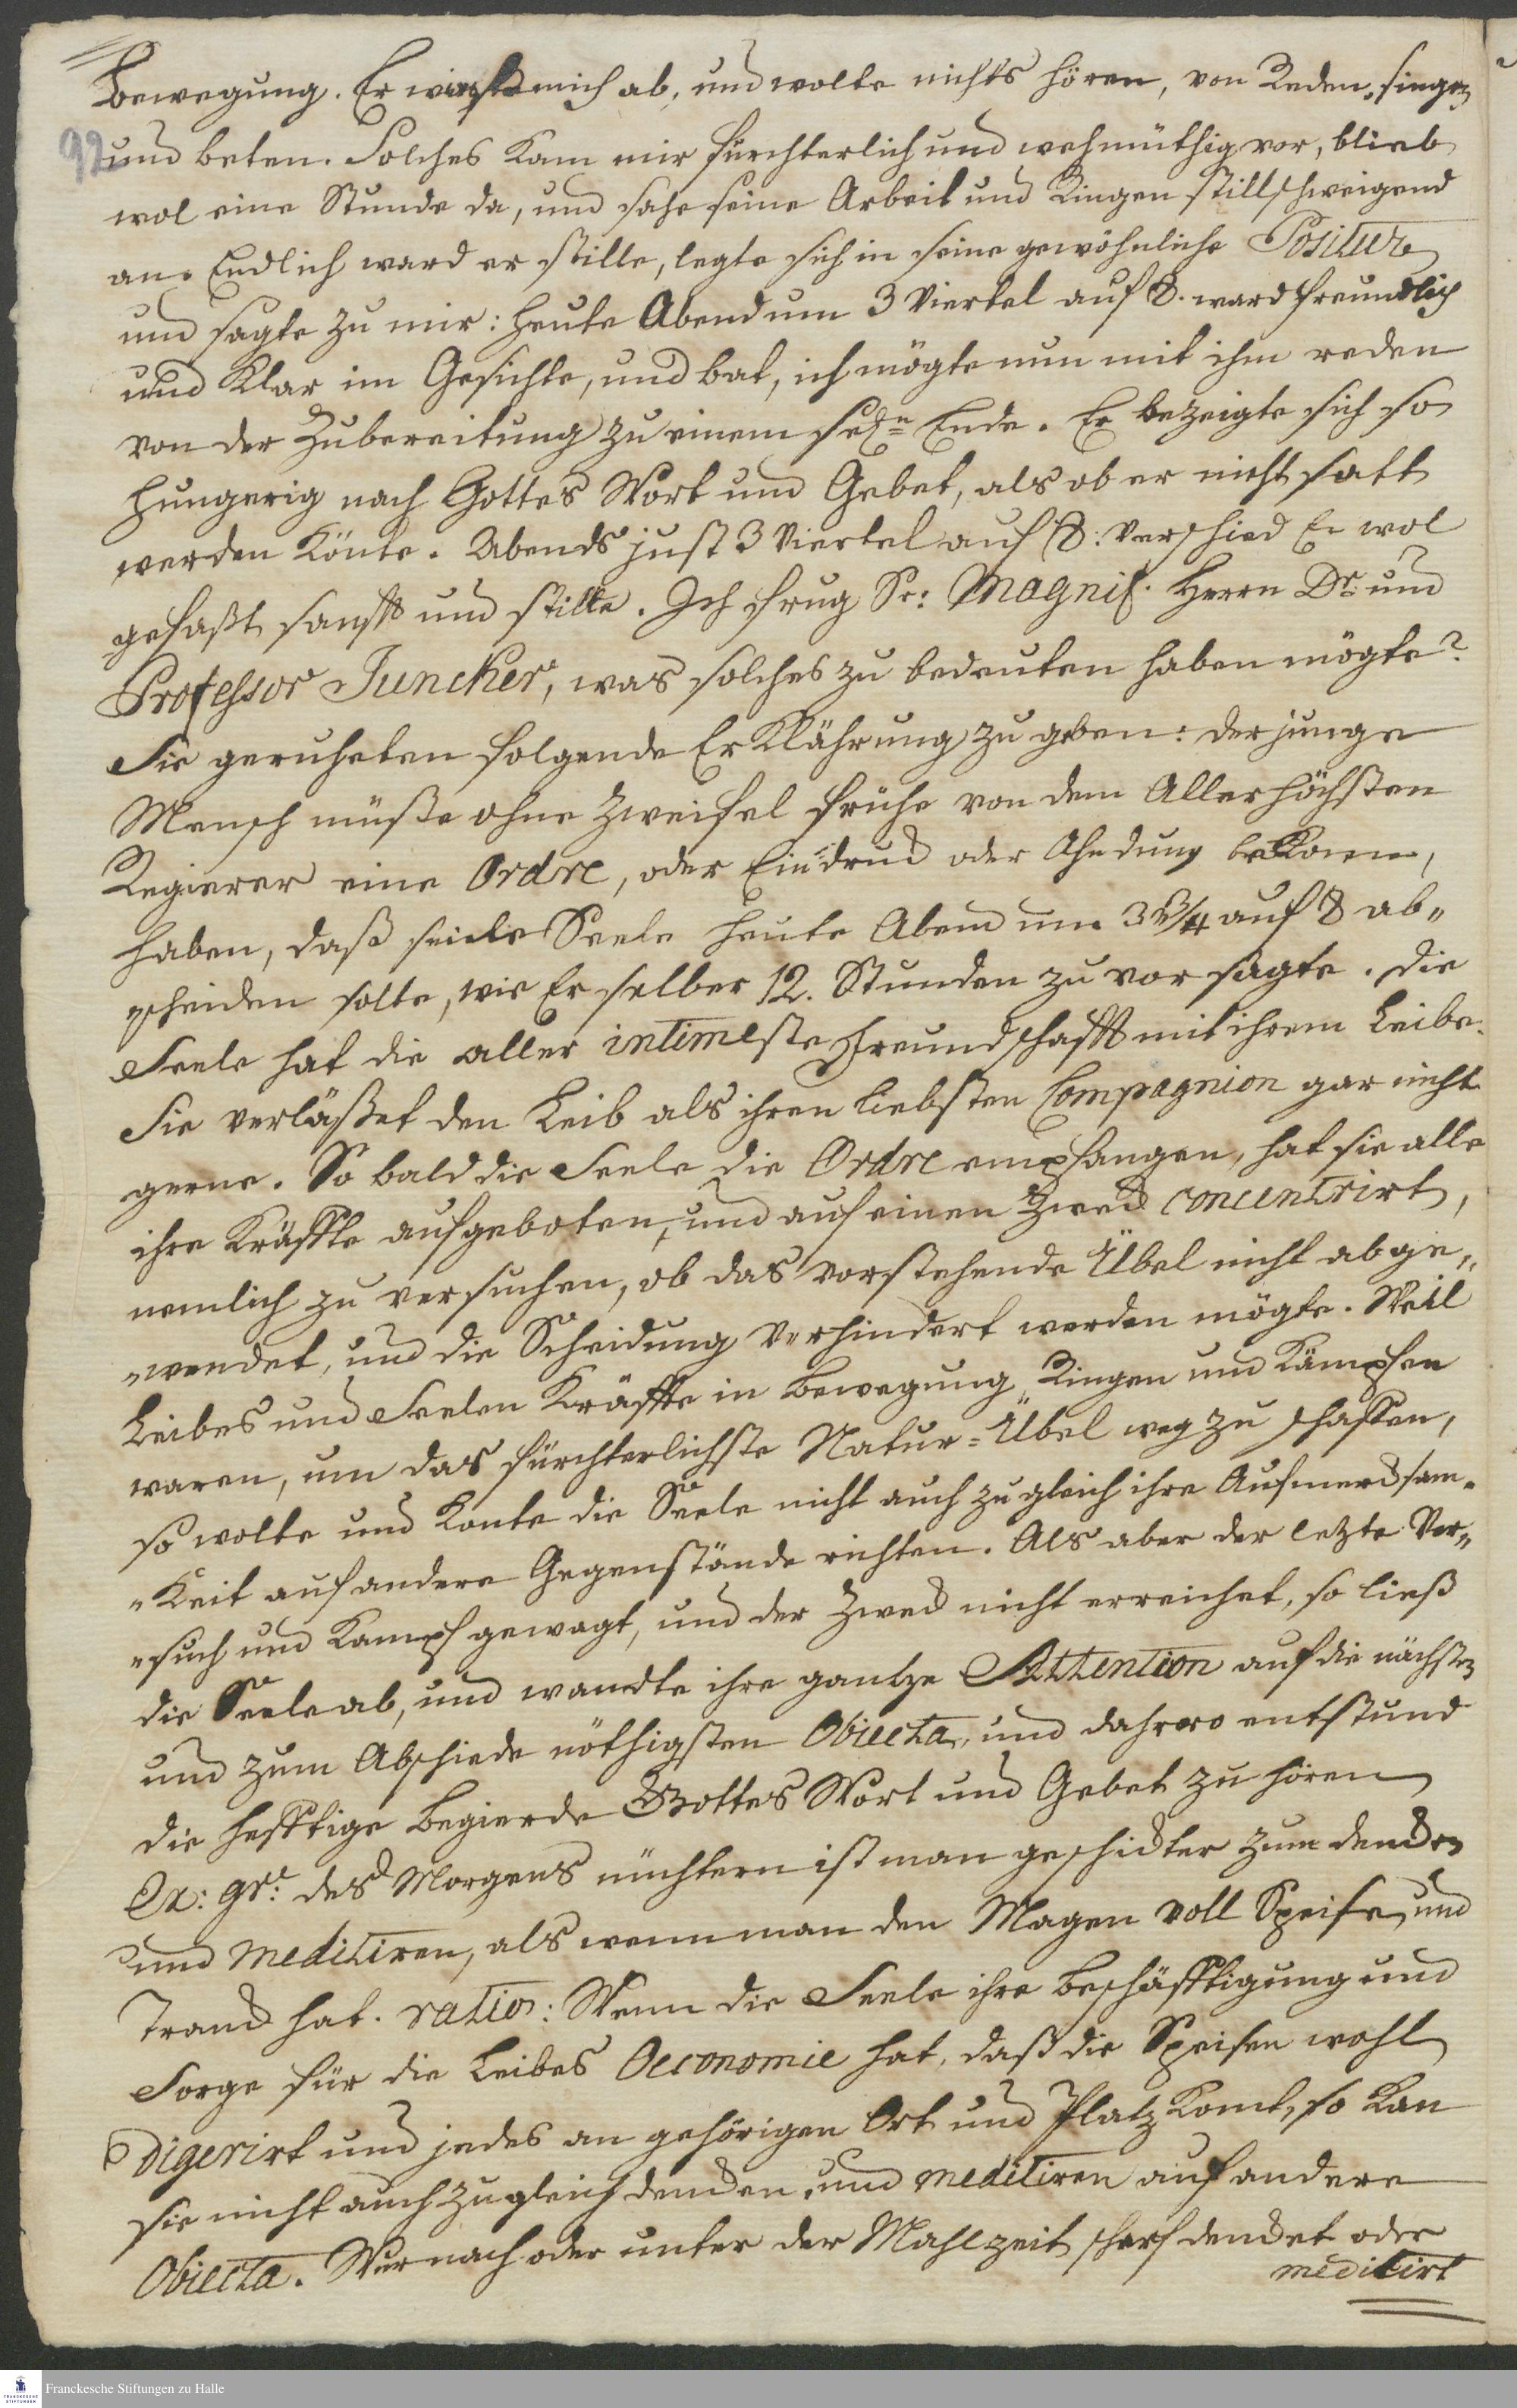 Bewegung. Er wieß mich ab, und wolte nichts hören, von Reden, singen
92
und beten. Solches kam mir fürchterlich und wehmüthig vor, blieb
wol eine Stunde da, und sahe seine Arbeit und Ringen stillschweigend
an. Endlich ward er stille, legte sich in seine gewöhnliche Positur
und sagte zu mir: heute Abend um 3 Viertel auf 8. ward freundlich
und Klar im Gesichte, und bat, ich mögte nun mit ihm reden
von der Zubereitung zu einem seeln Ende. Er bezeigte sich so
hungerig nach Gottes Wort und Gebet, als ob er nicht satt
werden könte. Abends just 3 Viertel auf 8: verschied Er wol
gefaßt sanfft und stille. Ich frug Sr: Magnif. Herrn Dr. und
Professor Juncker, was solches zu bedeuten haben mögte?
Sie geruheten folgende ErKlährung zu geben: der junge
Mensch müßte ohne Zweifel frühe von dem Allerhöchsten
Regierer eine Ordre, oder Eindruck oder Ahndung bekommen,
haben, daß seine Seele heute Abend um 3/4 auf 8 ab„
„scheiden solte, wie Er selber 12. Stunden zu vor sagte. Die
Seele hat die aller intimeste Freundschafft mit ihrem Leibe.
Sie verläßet den Leib als ihren liebsten Compagnion gar nicht
gerne. So bald die Seele die Ordre empfangen, hat sie alle
ihre Kräffte aufgeboten, und auf einen Zweck concentrirt,
nemlich zu versuchen, ob das vorstehende Übel nicht abge„
„wendet, und die Scheidung verhindert werden mögte. Weil
Leibes und Seelen Kräffte in Bewegung, Ringen und Kämpfen
waren, um das fürchterlichste Natur-Übel weg zu schaffen,
so wolte und konte die Seele nicht auch zugleich ihre Aufmercksam„
„keit auf andere Gegenstände richten. Als aber der letzte Ver„
„such und Kampf gewagt, und der Zweck nicht erreichet, so ließ
die Seele ab, und wandte ihre gantze Attention auf die nächsten
und zum Abschiede nöthigsten Objecta, und dahero entstund
die hefftige Begierde Gottes Wort und Gebet zu hören
Ex: gr: des Morgens nüchtern ist man geschickter zum dencken
und meditiren, als wenn man den Magen voll Speise und
Tranck hat. ratio: Wenn die Seele ihre Beschäfftigung und
Sorge für die Leibes Oeconomie hat, daß die Speisen wohl
digerirt und jedes an gehörigen Ort und Platz komt, so kan
sie nicht auch zugleich dencken und meditiren auf andere
Objecta. Wer nach oder unter der Mahlzeit scharf dencket oder
meditirt
Franckesche Stiftungen zu Halle